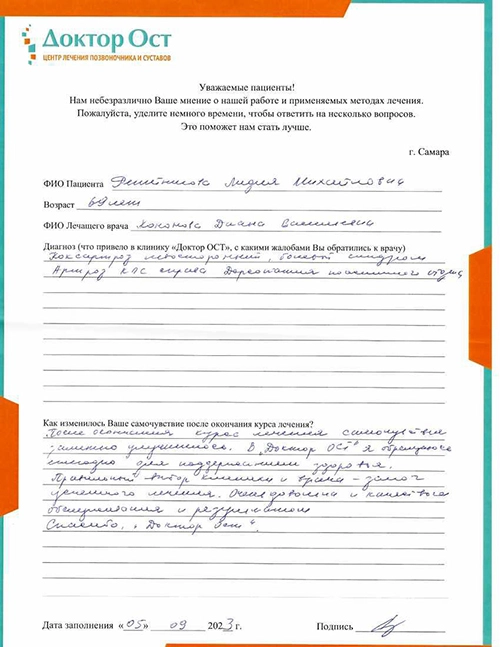 Доктор Ост
ЦЕНТР ЛЕЧЕНИЯ ПОЗВОНОЧНИКА И СУСТАВОВ
Уважаемые пациенты!
Нам небезразлично Ваше мнение о нашей работе и применяемых методах лечения.
Пожалуйста, уделите немного времени, чтобы ответить на несколько вопросов.
Это поможет нам стать лучше.
г. Самара
ФИО Пациента Лидия Михайловна
Возраст 69 лет
ФИО Лечащего врача Кононова Диана
Диагноз (что привело в клинику «Доктор ОСТ», с какими жалобами Вы обратились к врачу)
Коксартроз левосторонний, болевой синдром
Артроз КПС справа Дорсопатия поясничного отдела
Как изменилось Ваше самочувствие после окончания курса лечения?
После окончания курса лечения самочувствие
заметно улучшилось. В "Доктор ОСТ" я обращаюсь
ежегодно для поддержания здоровья.
Правильный выбор клиники и врача - залог
успешного лечения. качеством
обслуживания и результатом
Спасибо, "Доктор Ост".
Дата заполнения «05» 09 2023 г.
Подпись